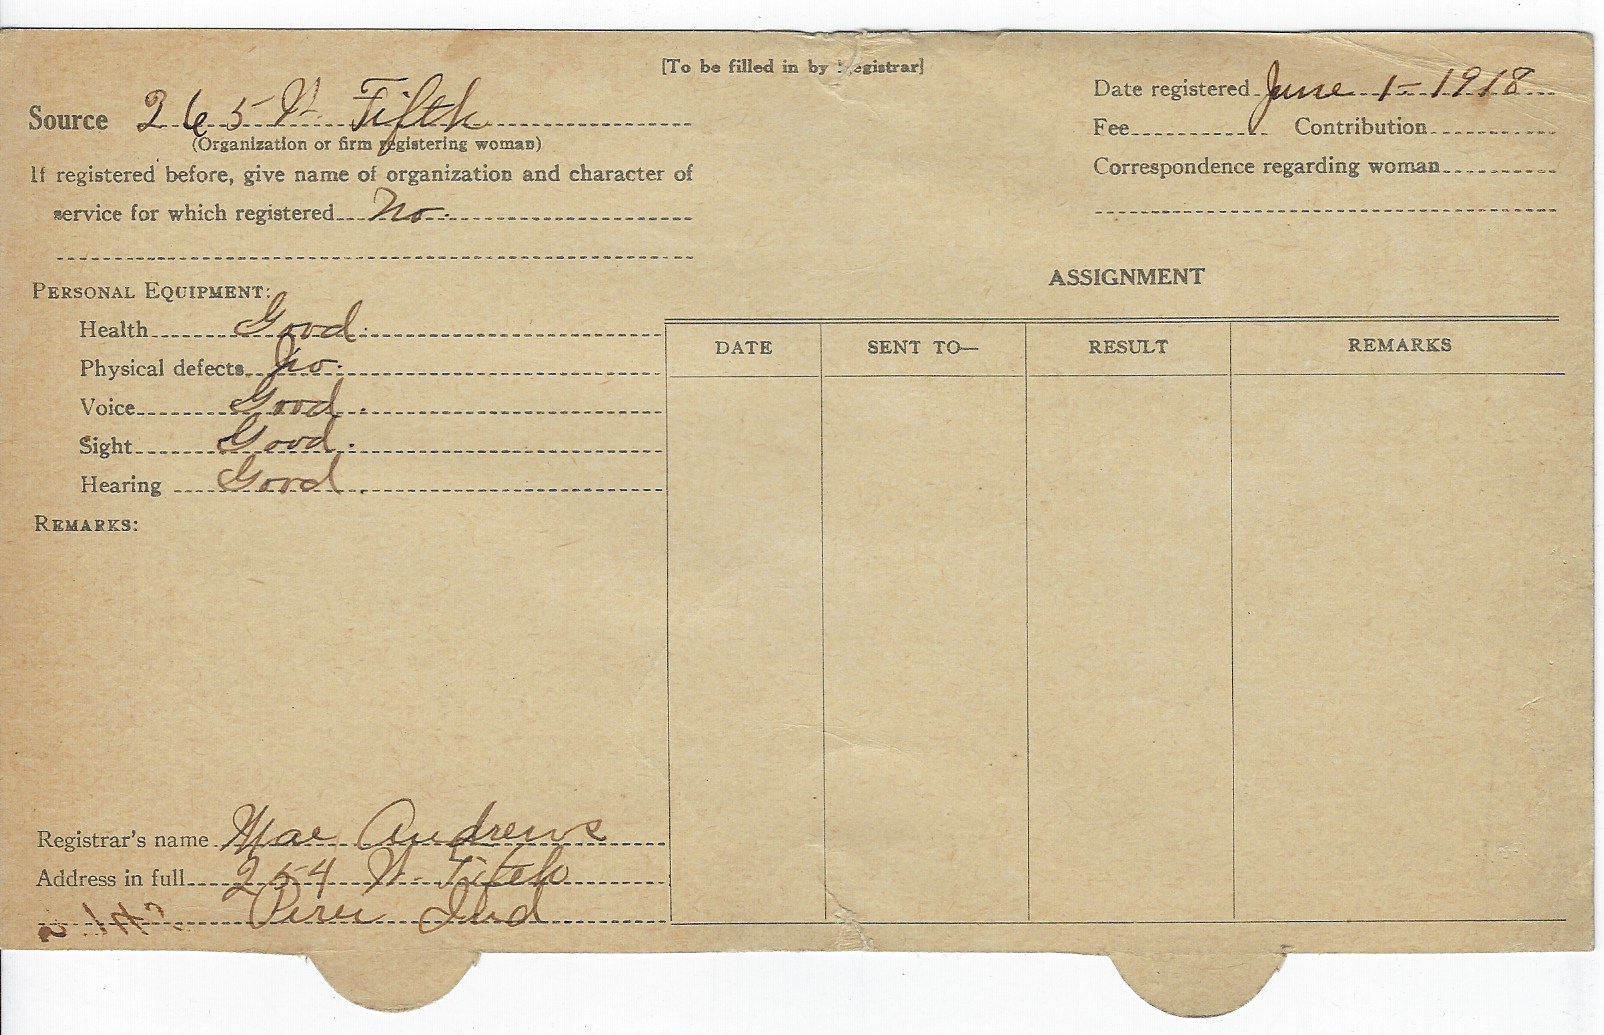 [To be filled in by Registrar]
Source 265 W. Fifth
(Organization or firm registering woman)
If registered before, give name of organization and character of
service for which registered No.
Date registered June 1 - 1918
Fee Contribution
Correspondence regarding woman
PERSONAL EQUIPMENT:
Health Good.
Physical defects No.
Voice Good.
Sight Good.
Hearing Good.
REMARKS:
ASSIGNMENT
DATE SENT TO— RESULT REMARKS
Registrar's name Mae Andrews
Address in full 254 W. Fifth
Peru Ind